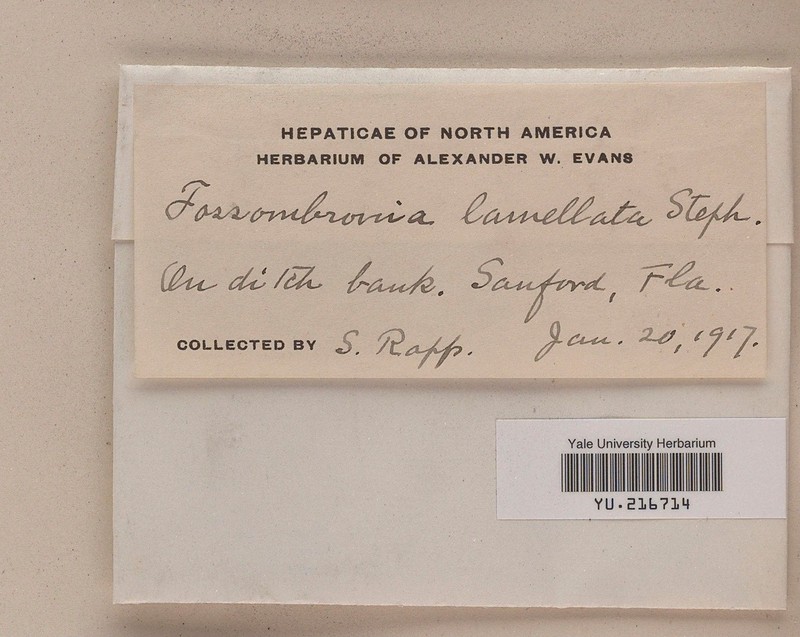 HEPATICAE OF NORTH AMERICA
HERBARIUM OF ALEXANDER W. EVANS
Fossombronia lamellata Steph.
On ditch bank. Sanford, Fla.
COLLECTED BY S. Rapp. Jan. 20, 1917.
Yale University Herbarium
YU.216714